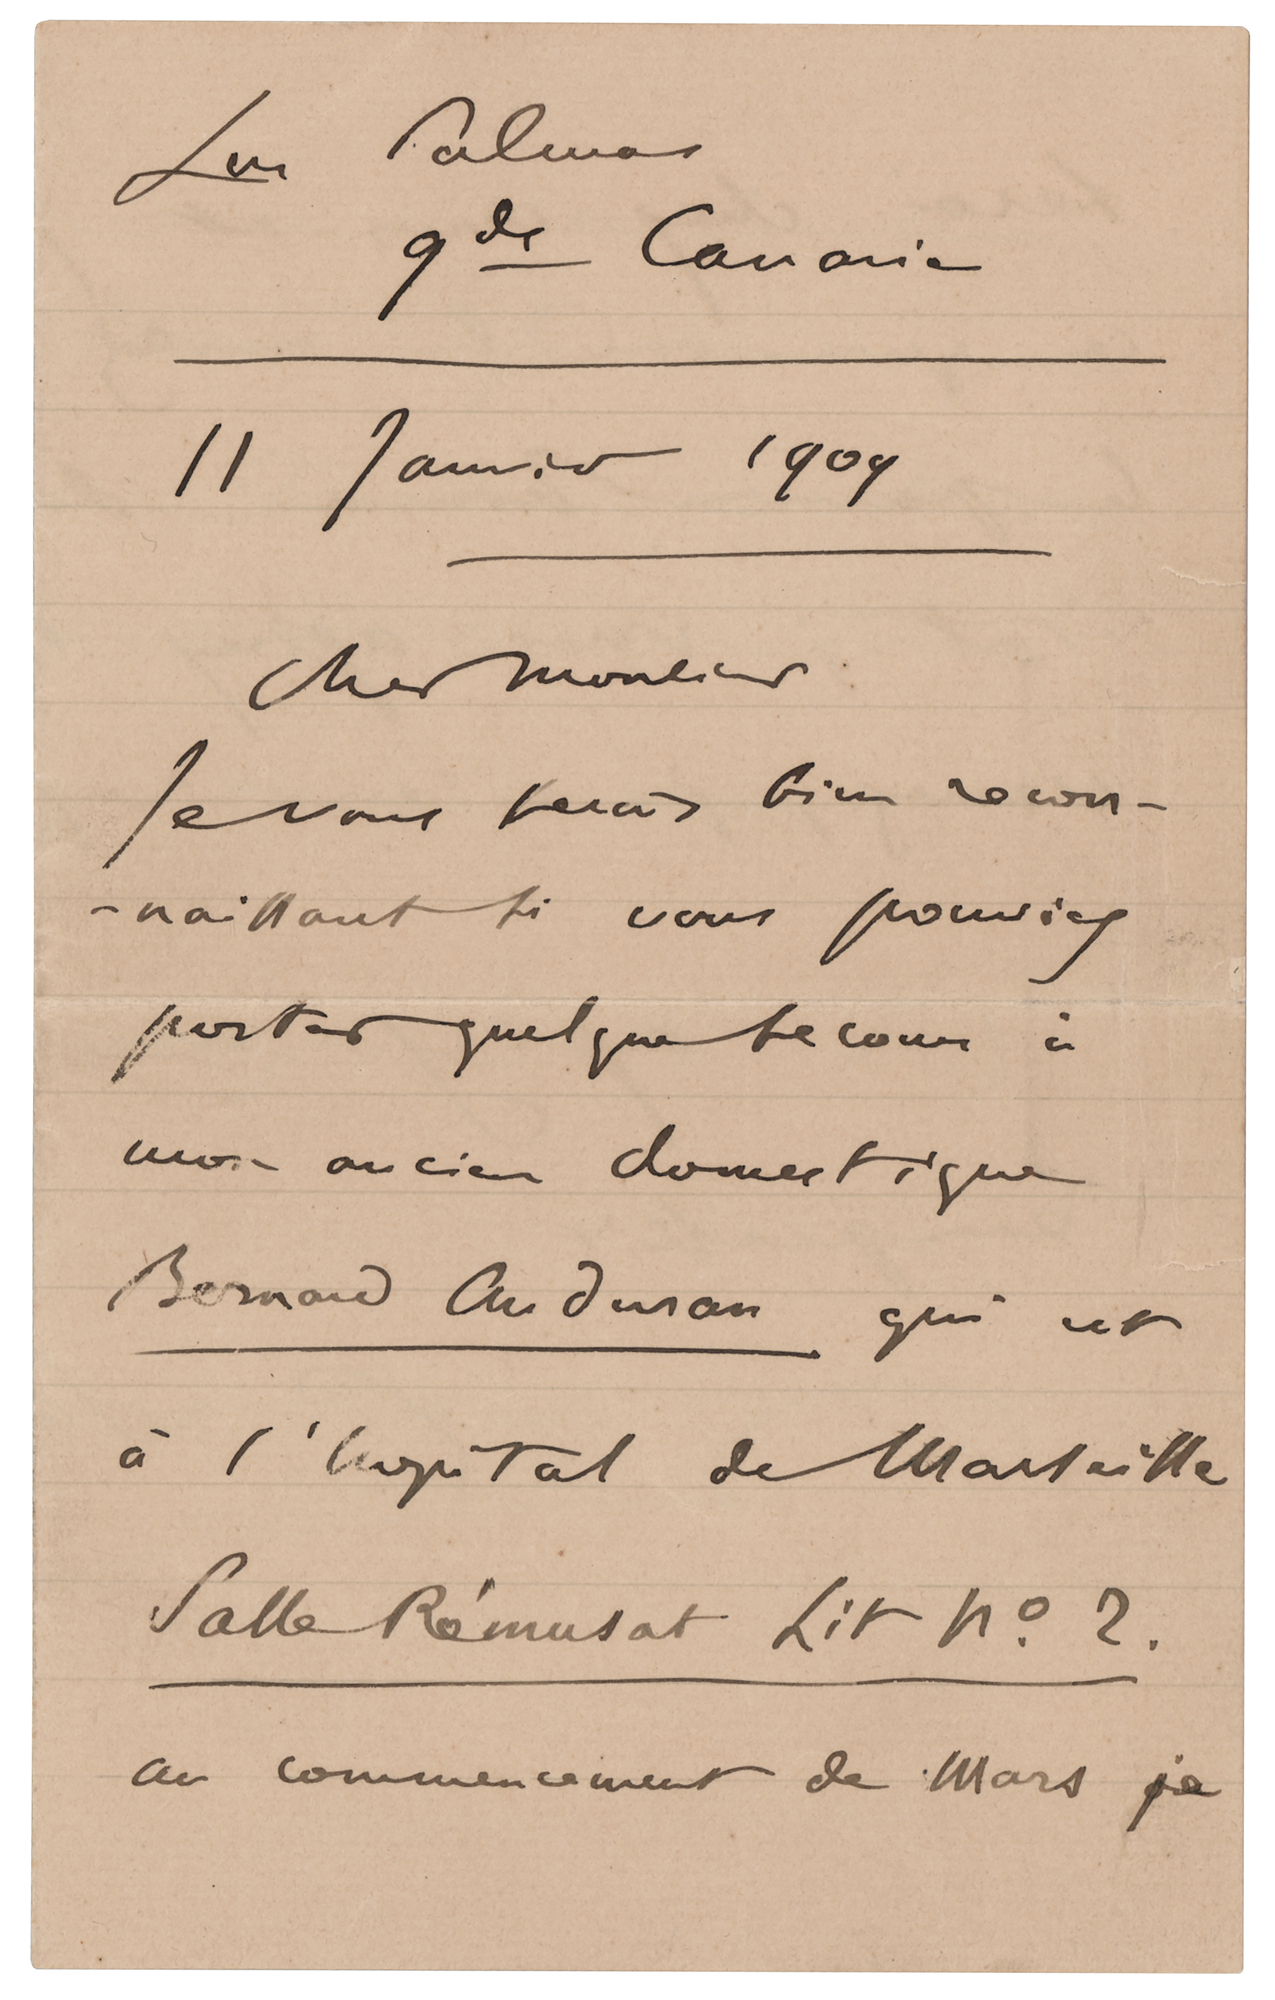 Las Palmas
gde Canarie
11 Janvier 1909
Cher Monsieur
Je vous serais bien recon-
-naissant si vous pouviez
porter quelque secours à
mon ancien domestique
Bernard Anduran qui est
à l'hopital de Marseille
Salle Rémusat Lit No. 2.
au commencement de Mars je